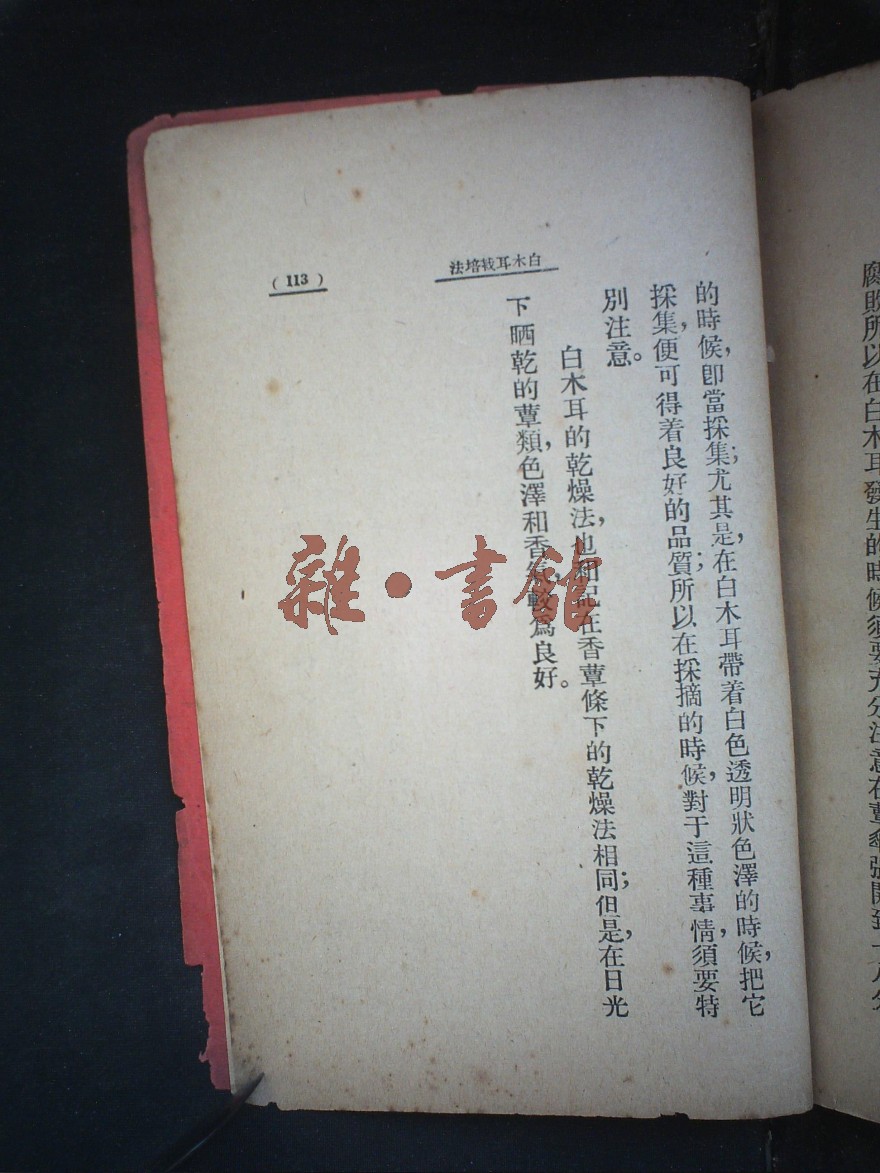 腐敗所以在白木耳發生的時候須要充分注意在蕈傘張開到
的時候，卽當採集；尤其是，在白木耳帶着白色透明狀色澤的時候，把它
採集，便可得着良好的品質；所以在採摘的時候，對于這種事情，須要特
別注意。
白木耳的乾燥法，也和記在香蕈條下的乾燥法相同；但是，在日光
下晒乾的蕈類，色澤和香氣，較爲良好。
白木耳栽培法
(113)
雜·書館